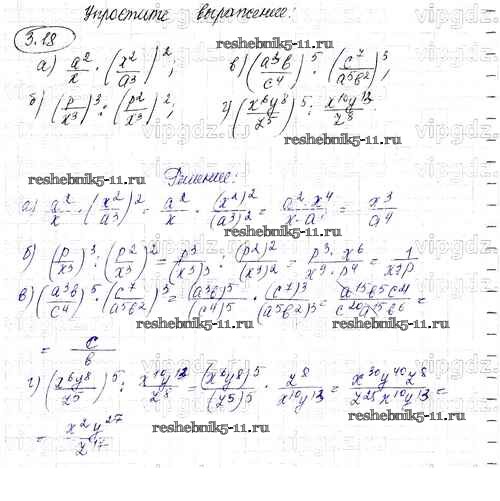 Упростите выражение:
3.18
а) a²/x · (x²/a³)²;
в) (a³b/c⁴)⁵ · (c⁷/a⁵b²)³;
б) (p/x³)³ : (p²/x³)²;
г) (x⁶y⁸/z⁵)⁵ : x¹⁰y¹³/z⁸
Решение:
а) a²/x · (x²/a³)² = a²/x · (x²)²/(a³)² = a²·x⁴/x·a⁶ = x³/a⁴
б) (p/x³)³ : (p²/x³)² = p³/(x³)³ : (p²)²/(x³)² = p³·x⁶/x⁹·p⁴ = 1/x³p
в) (a³b/c⁴)⁵ · (c⁷/a⁵b²)³ = (a³b)⁵/(c⁴)⁵ · (c⁷)³/(a⁵b²)³ = a¹⁵b⁵c²¹/c²⁰a¹⁵b⁶ =
= c/b
г) (x⁶y⁸/z⁵)⁵ : x¹⁰y¹³/z⁸ = (x⁶y⁸)⁵/(z⁵)⁵ · z⁸/x¹⁰y¹³ = x³⁰y⁴⁰z⁸/z²⁵x¹⁰y¹³ =
= x²y²⁷/z¹⁷
reshebnik5-11.ru
reshebnik5-11.ru
reshebnik5-11.ru
reshebnik5-11.ru
reshebnik5-11.ru
reshebnik5-11.ru
vipgdz.ru